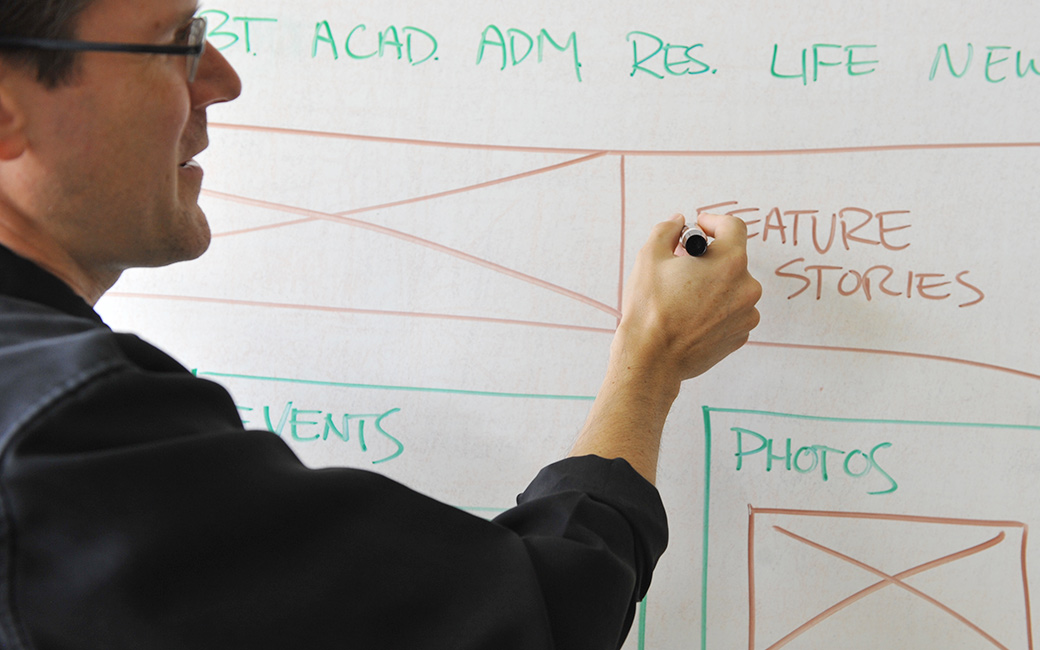 BT. ACAD. ADM. RES. LIFE NEW
FEATURE
STORIES
EVENTS
PHOTOS